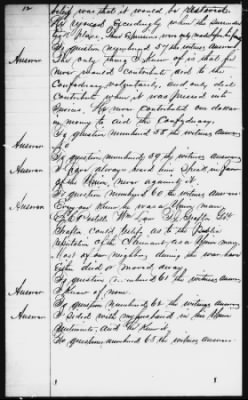 12
belief was that it would be restored.
He rejoiced exceedingly when the surrender
took place.
To question numbered 37 the witness answers
Answer The only thing I know of is that he
never would contribute aid to the
Confederacy voluntarily, and only did
contribute when it was pressed into
service. He never contributed one dollar
in money to aid the Confederacy.
To question numbered 38 the witness answers
Answer No
To question numbered 39 the witness answers
Answer I have always heard him speak in favor
of the Union, never against it.
To question numbered 60 the witness answers
Answer Every one knew he was a Union man,
could testify as to the Public
reputation of the Claimant as a Union man
Most of our neighbors during the war have
either died or moved away.
To question numbered 61 the witness answers
Answer I know of none.
To question numbered 62 the witness answers
Answer I sided with my husband in his Union
sentiments, and the
To question numbered 63 the witness answers